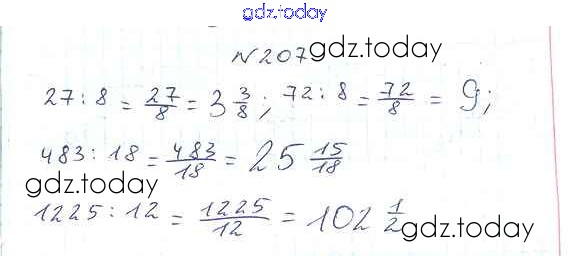 gdz.today
N 207 gdz.today
27 : 8 = 27/8 = 3 3/8 ; 72 : 8 = 72/8 = 9;
483 : 18 = 483/18 = 25 15/18
gdz.today
1225 : 12 = 1225/12 = 102 1/2 gdz.today